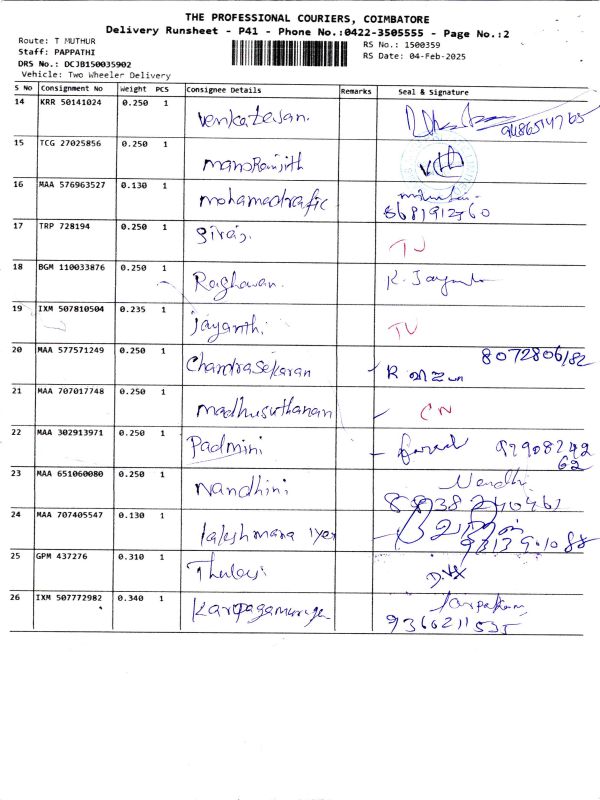 THE PROFESSIONAL COURIERS, COIMBATORE
Delivery Runsheet - P41 - Phone No.:0422-3505555 - Page No.:2
Route: T MUTHUR
Staff: PAPPATHI
DRS No.: DCJB150035902
Vehicle: Two Wheeler Delivery
RS No.: 1500359
RS Date: 04-Feb-2025
S No Consignment No Weight PCS Consignee Details Remarks Seal & Signature
14 KRR 50141024 0.250 1 Venkatesan.
15 TCG 27025856 0.250 1 manoRanjith
16 MAA 576963527 0.130 1 mohamedrafic
17 TRP 728194 0.250 1 Siraj. TU
18 BGM 110033876 0.250 1 Raghavan.
19 IXM 507810504 0.235 1 jayanthi TU
20 MAA 577571249 0.250 1 Chandrasekaran 8072806182
21 MAA 707017748 0.250 1 madhusuthanan CN
22 MAA 302913971 0.250 1 Padmini
23 MAA 651060080 0.250 1 Nandhini Nandhi
24 MAA 707405547 0.130 1
25 GPM 437276 0.310 1
26 IXM 507772982 0.340 1 9366211535